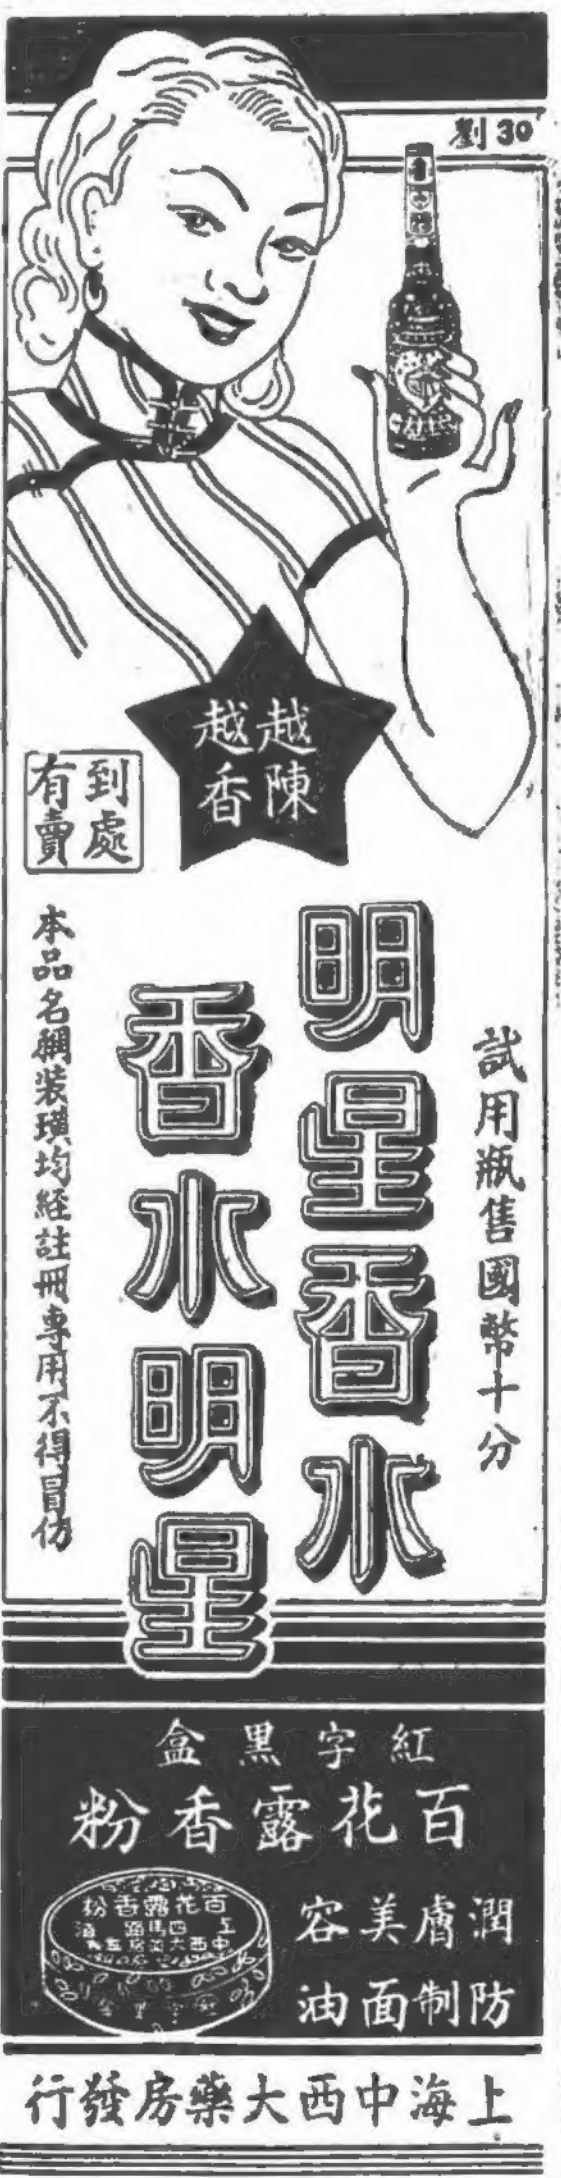 劉 30
越陳
越香
到處
有賣
試用瓶售國幣十分
明星香水
香水明星
本品名稱裝璜均經註冊專用不得冒仿
紅字黑盒
百花露香粉
潤膚美容
防制面油
百花露香粉
上海中西大藥房發行